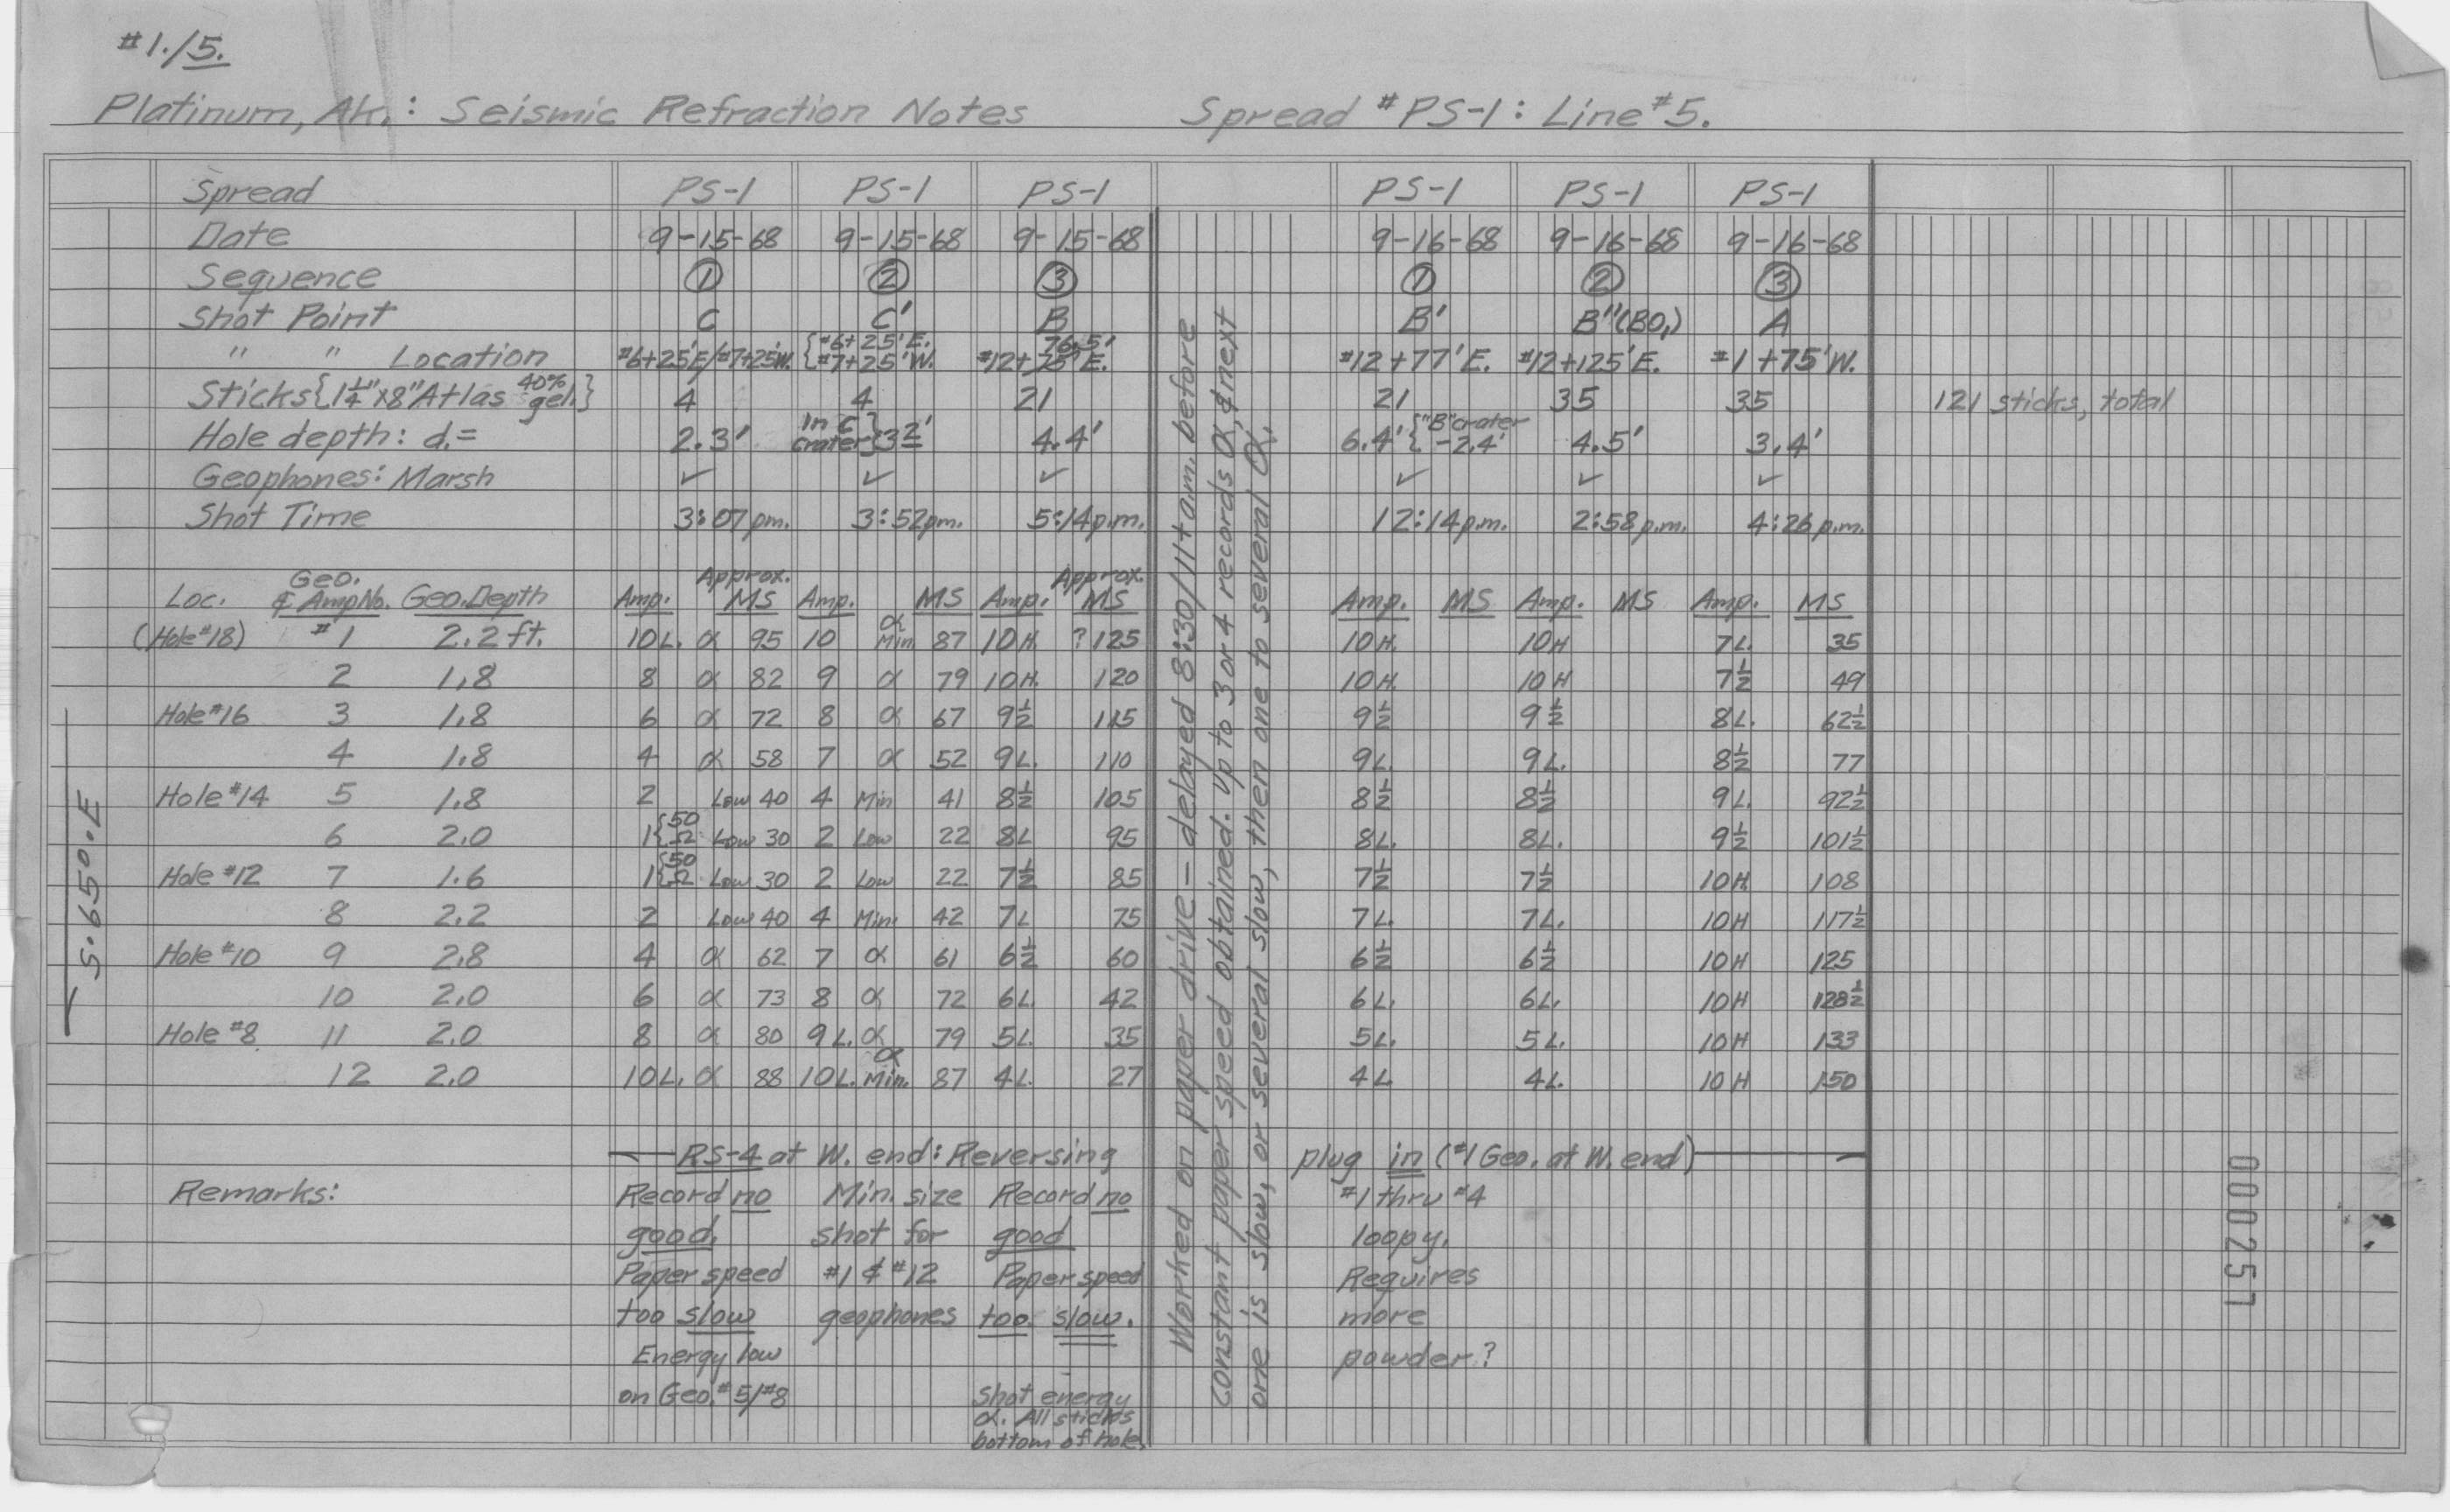 #1./5.
Platinum, Ak.: Seismic Refraction Notes Spread #PS-1: Line #5.
Spread PS-1 PS-1 PS-1 PS-1 PS-1 PS-1
Date 9-15-68 9-15-68 9-15-68 9-16-68 9-16-68 9-16-68
Sequence ① ② ③ ① ② ③
Shot Point C C' B B' B"(BO,) A
" " Location #6+25'E/#7+25'W. {#6+25'E. #7+25'W. #12+75' 76.5' E. #12+77'E. #12+125'E. #1+75'W.
Sticks{1¼"x8"Atlas 40% gel.} 4 4 21 21 35 35 121 sticks, total
Hole depth: d.= 2.3' In C crater}3 2' 4.4' 6.4'{"B"crater -2.4' 4.5' 3.4'
Geophones: Marsh ✓ ✓ ✓ ✓ ✓ ✓
Shot Time 3:07pm. 3:52pm. 5:14p.m. 12:14p.m. 2:58p.m. 4:26p.m.
Loc. Geo. & Amp No. Geo. Depth Amp. Approx. MS Amp. MS Amp. Approx. MS Amp. MS Amp. MS Amp. MS
(Hole #18) #1 2.2 ft. 10L. α 95 10 α Min. 87 10H. ?125 10H. 10H 7L. 35
2 1.8 8 α 82 9 α 79 10H. 120 10H. 10H 7½ 49
Hole #16 3 1.8 6 α 72 8 α 67 9½ 115 9½ 9½ 8L. 62½
4 1.8 4 α 58 7 α 52 9L. 110 9L. 9L. 8½ 77
Hole #14 5 1.8 2 Low 40 4 Min 41 8½ 105 8½ 8½ 9L. 92½
6 2.0 1{50 Ω Low 30 2 Low 22 8L 95 8L. 8L. 9½ 101½
Hole #12 7 1.6 1{50 Ω Low 30 2 Low 22 7½ 85 7½ 7½ 10H 108
8 2.2 2 Low 40 4 Min. 42 7L 75 7L. 7L. 10H 117½
Hole #10 9 2.8 4 α 62 7 α 61 6½ 60 6½ 6½ 10H 125
10 2.0 6 α 73 8 α 72 6L. 42 6L. 6L. 10H 128½
Hole #8 11 2.0 8 α 80 9L. α 79 5L. 35 5L. 5L. 10H 133
12 2.0 10L. α 88 10L. α Min. 87 4L. 27 4L 4L. 10H 150
S.65°.E
RS-4 at W. end: Reversing plug in (#1 Geo. at W. end)
Remarks: Record no Min. size Record no #1 thru #4
good. shot for good loopy.
Paper speed #1 & #12 Paper speed Requires
too slow geophones too slow. more
Energy low powder?
on Geo. #5/#8 Shot energy
α. All sticks
bottom of hole.
Worked on paper drive - delayed 8:30/11+a.m. before
constant paper speed obtained. Up to 3 or 4 records α, & next
one is slow, or several slow, then one to several α.
000251